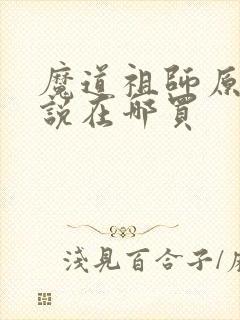 魔道祖師原
說在哪買
淺見百合子/